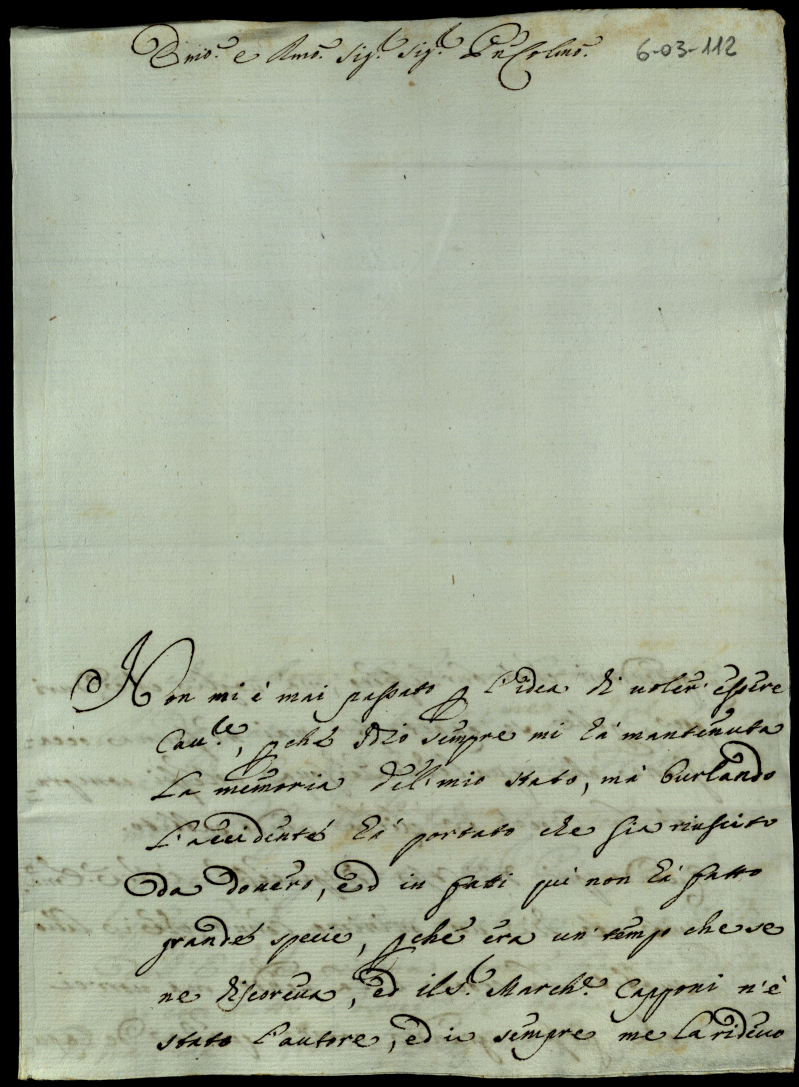 Emo. e Rmo. Sig.r Sig.r Pn Colmo. 6-03-112
Non mi è mai passato p l'idea di voler essere
Cav.le, pchè Iddio sempre mi hà mantenuta
La memoria del mio stato, mà burlando
l'accidente hà portato che sia riuscito
da dovero, ed in fatti quì non hà fatto
grande specie, pchè era un tempo che se
ne discoreva, ed il S.r March.e Capponi n'è
stato l'autore, ed io sempre me la ridevo